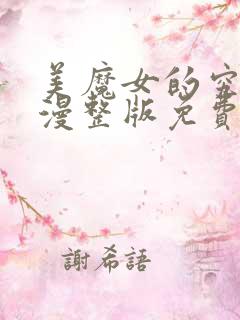 美魔女的穷
漫整版免费
謝希語